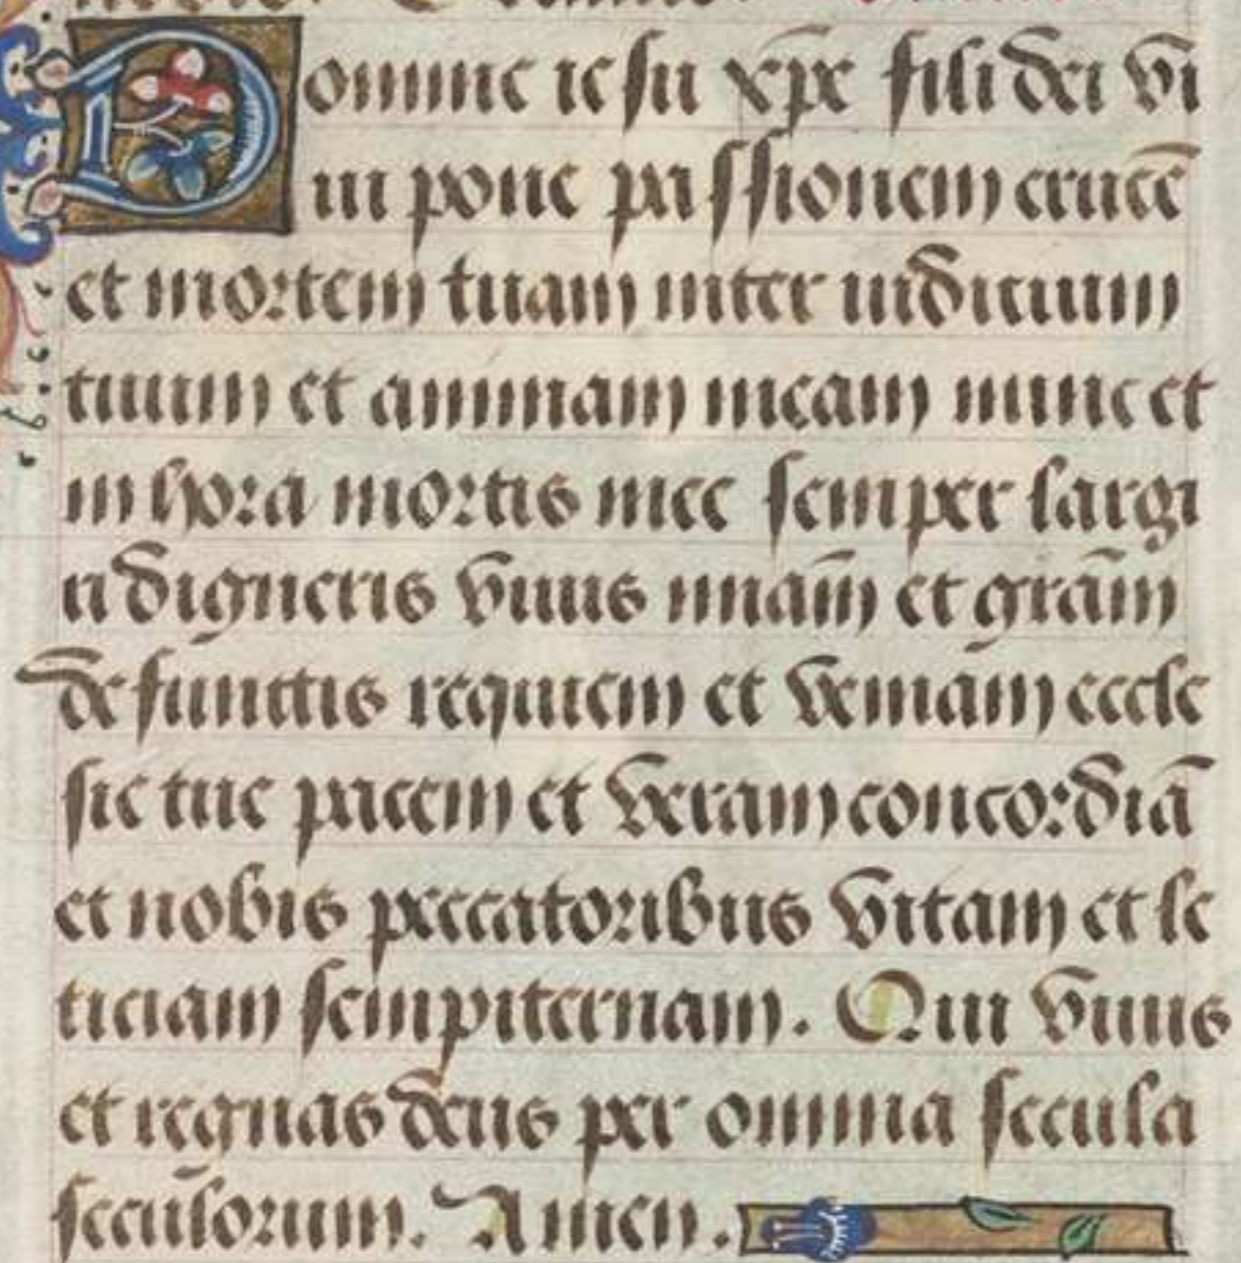 Domine iesu xp̄e fili dei vi
ui pone passionem crucē
et mortem tuam inter iudicium
tuum et animam meam nunc et
in hora mortis mee semper largi
ri digneris viuis miām et grām
defunctis requiem et veniam eccle
sie tue pacem et veram concordiā
et nobis peccatoribus vitam et le
ticiam sempiternam. Qui viuis
et regnas deus per omnia secula
seculorum. Amen.